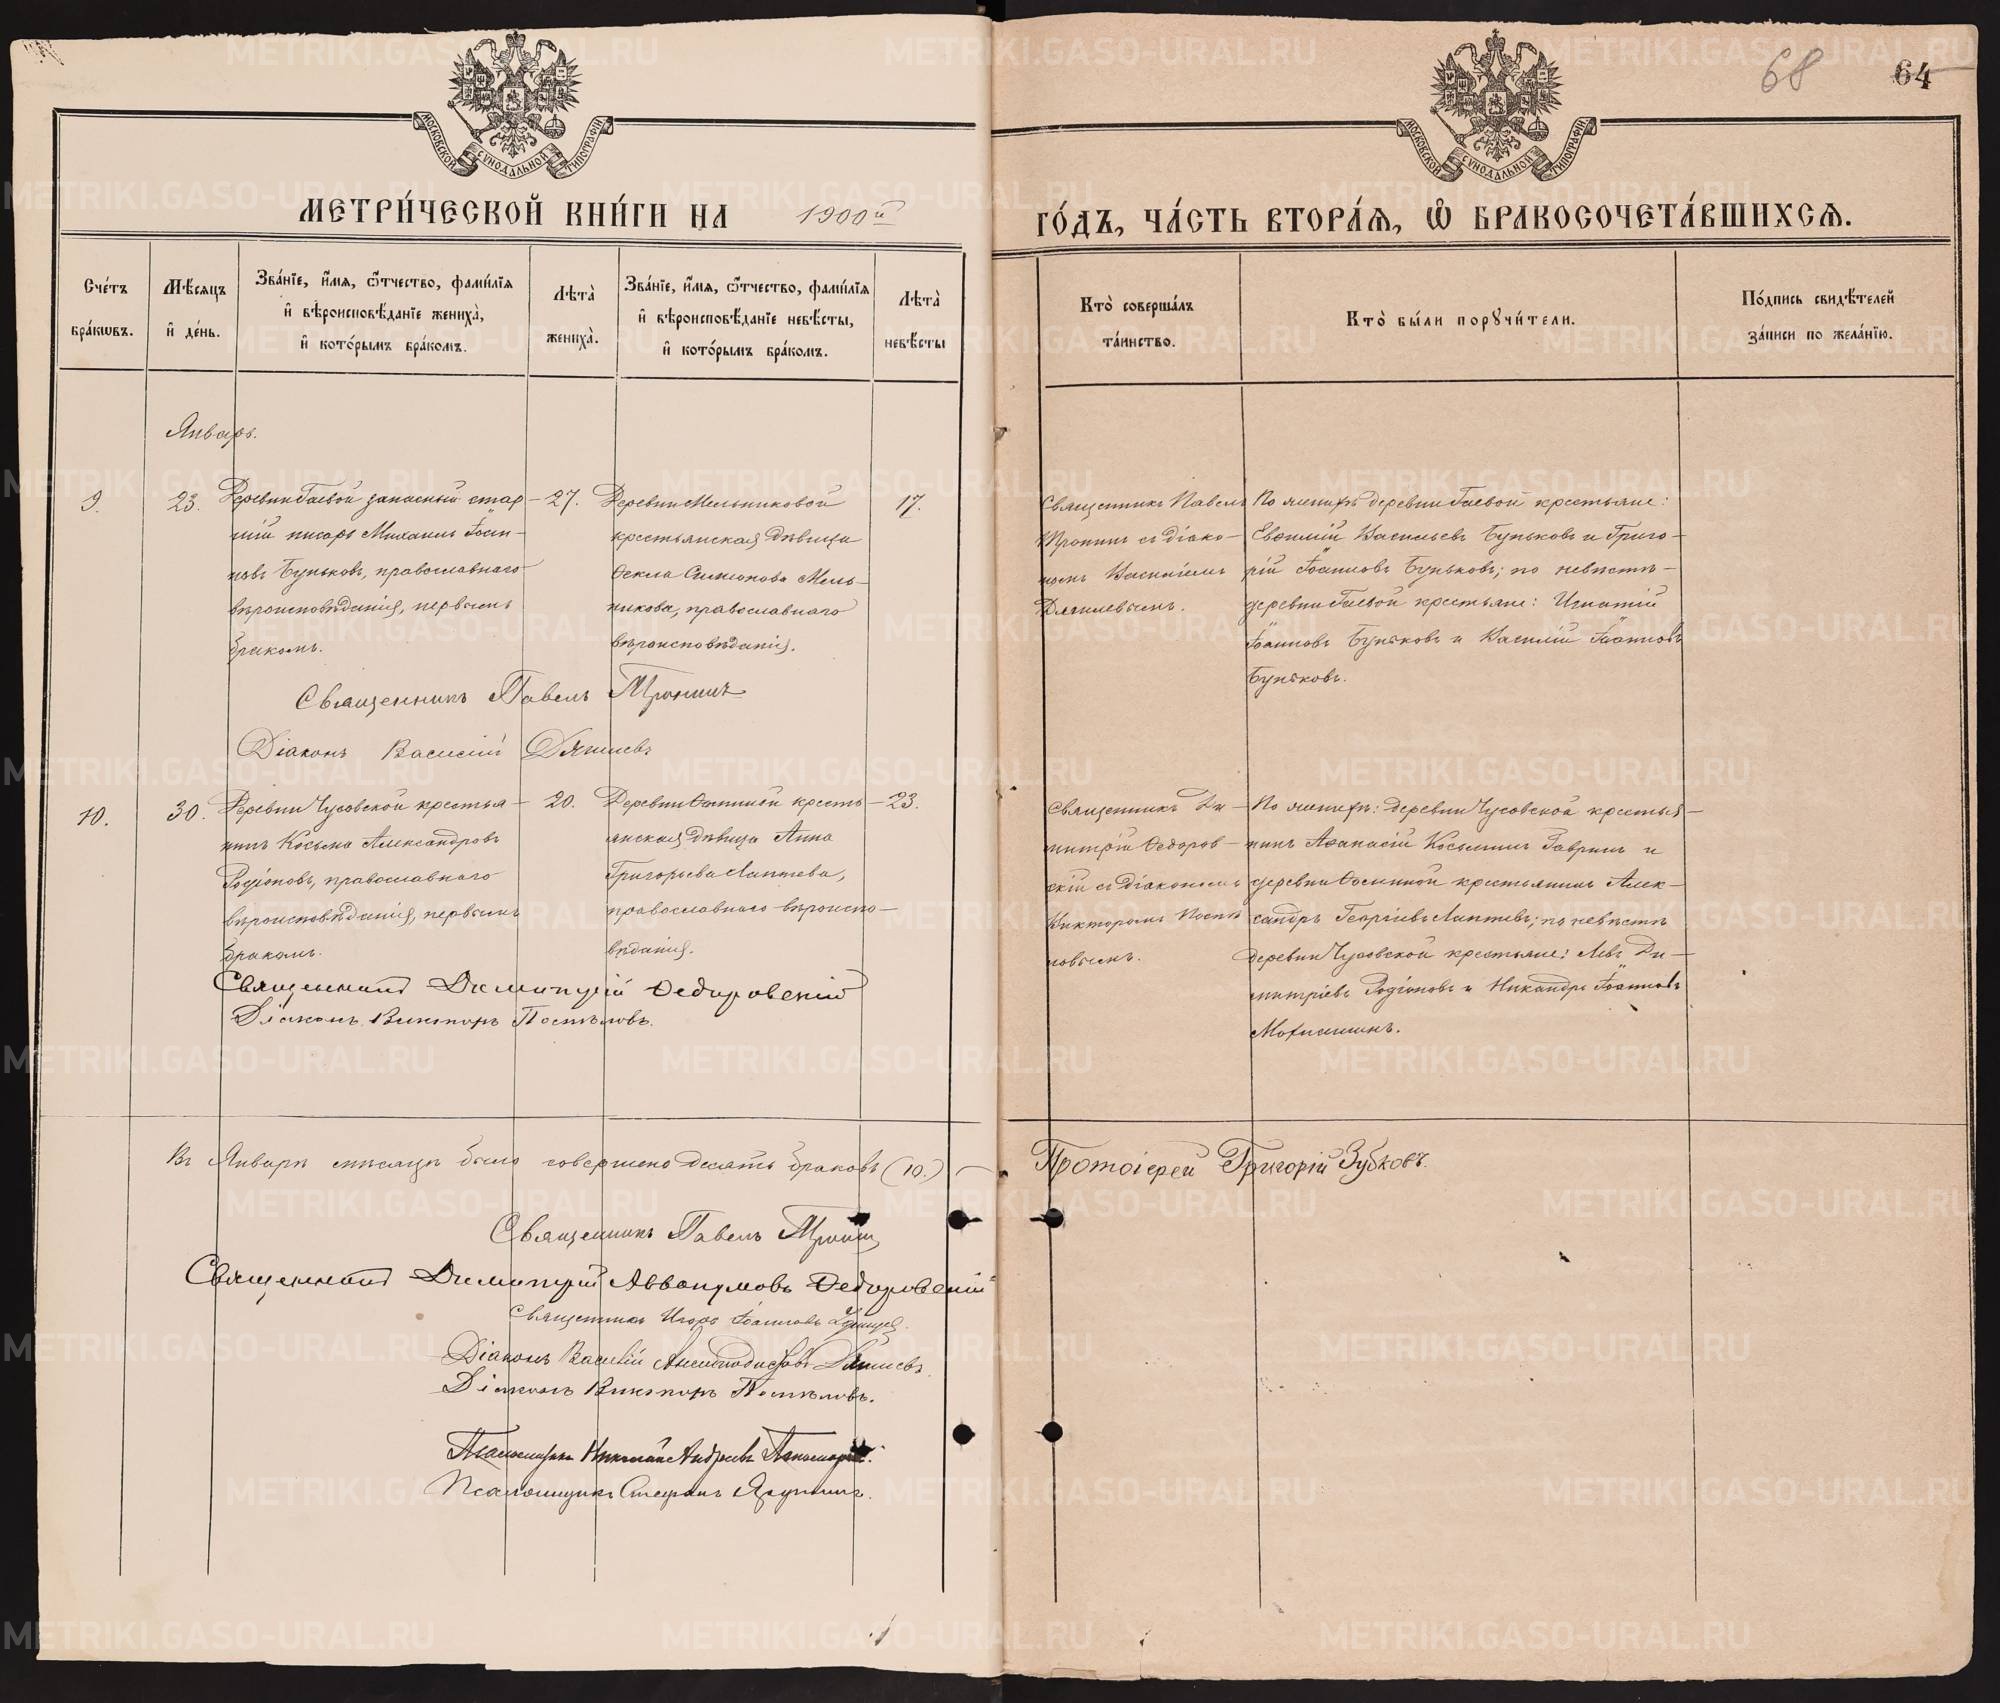 68
64
МОСКОВСКОЙ СѴНОДАЛЬНОЙ ТИПОГРАФІИ
МОСКОВСКОЙ СѴНОДАЛЬНОЙ ТИПОГРАФІИ
МЕТРИ́ЧЕСКОЙ КНИ́ГИ НА 1900й
ГО́ДЪ, ЧА́СТЬ ВТОРА́Я, Ѽ БРАКОСОЧЕТА́ВШИХСЯ.
Сче́тъ бра́кѡвъ.
Мѣ́сяцъ и҆ де́нь.
Зва́нїе, и҆́мя, ѻ҆́тчество, фами́лїя и҆ вѣроисповѣ́данїе жениха̀, и҆ кото́рымъ бра́комъ.
Лѣта̀ жениха̀.
Зва́нїе, и҆́мя, ѻ҆́тчество, фами́лїя и҆ вѣроисповѣ́данїе невѣ́сты, и҆ кото́рымъ бра́комъ.
Лѣта̀ невѣ́сты
Кто̀ соверша́лъ та́инство.
Кто̀ бы́ли порꙋчи́тели.
По́дпись свидѣ́телей за́писи по жела́нїю.
Январь.
9.
23.
Деревни Гаевой запасный стар-
шій писарь Михаилъ Іоан-
новъ Буньковъ, православнаго
вѣроисповѣданія, первымъ
бракомъ.
27.
Деревни Мельниковой
крестьянская дѣвица
Ѳекла Симеонова Мель-
никова, православнаго
вѣроисповѣданія.
17.
Священникъ Павелъ
Тронинъ съ діако-
номъ Василіемъ
Дягилевымъ.
По женихѣ деревни Гаевой крестьяне:
Евѳимій Васильевъ Буньковъ и Григо-
рій Іоанновъ Буньковъ; по невѣстѣ-
деревни Гаевой крестьяне: Игнатій
Іоанновъ Буньковъ и Василій Іоанновъ
Буньковъ.
Священникъ Павелъ Тронинъ
Діаконъ Василій Дягилевъ
10.
30.
Деревни Чусовской крестья-
нинъ Косьма Александровъ
Родіоновъ, православнаго
вѣроисповѣданія, первымъ
бракомъ.
20.
Деревни Ѳоминой кресть-
янская дѣвица Анна
Григорьева Лаптева,
православнаго вѣроиспо-
вѣданія.
23.
Священникъ Ди-
митрій Ѳедоров-
скій съ діакономъ
Викторомъ Поспѣ
ловымъ.
По женихѣ: деревни Чусовской крестья-
нинъ Аѳанасій Косьминъ Гаринъ и
деревни Ѳоминой крестьянинъ Алек-
сандръ Георгіевъ Лаптевъ; по невѣстѣ
деревни Чусовской крестьяне: Левъ Ди-
митріевъ Родіоновъ и Никандръ Іоанновъ
Священникъ Димитрій Ѳедоровскій
Діаконъ Викторъ Поспѣловъ.
Въ Январѣ мѣсяцѣ было совершено десять браковъ (10.)
Протоіерей Григорій Зубковъ.
Священникъ Павелъ Тронин
Священникъ Димитрій Аввакумовъ Ѳедоровскій
Священникъ Игорь Іоанновъ
Діаконъ Василій Дягилевъ.
Діаконъ Викторъ Поспѣловъ.
Псаломщикъ Николай Андреевъ Пономаревъ.
Псаломщикъ Стефанъ Ярушинъ.
METRIKI.GASO-URAL.RU